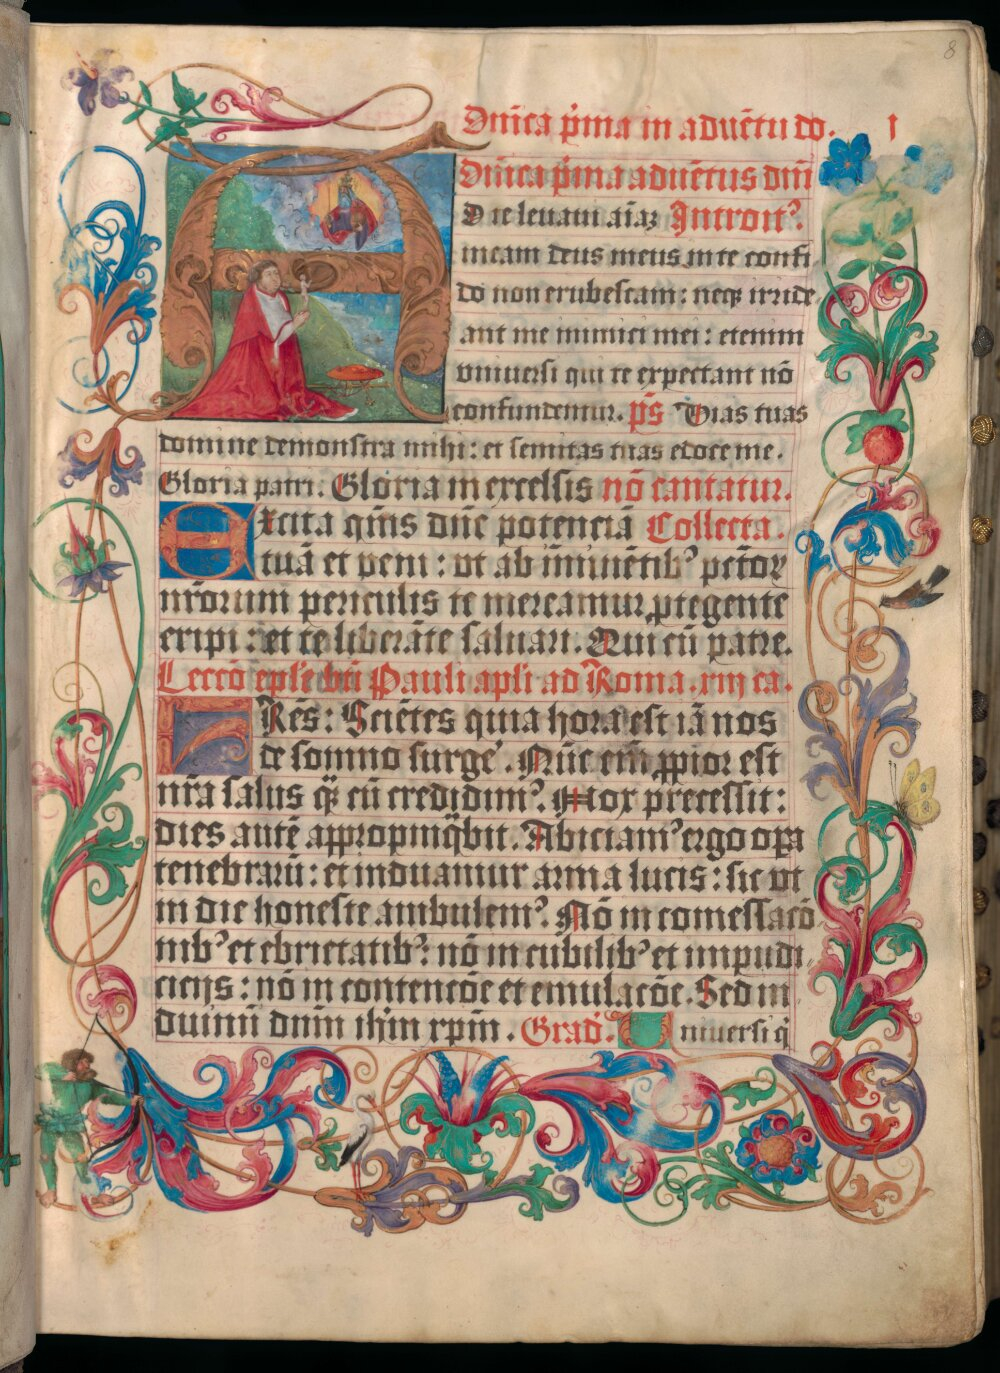 8
Dn̄ica p̄ma in aduētu do. I
Dn̄ica p̄ma aduētus dn̄i
AD te leuaui aīaꝫ Introit⁹.
meam deus meus in te confi
do non erubescam: neqꝫ irride
ant me inimici mei: etenim
vniuersi qui te expectant nō
confundentur. p̄s Vias tuas
domine demonstra mihi: et semitas tuas edoce me.
Gloria patri. Gloria in excelsis nō cantatur.
Excita qm̄s dn̄e potenciā Collecta.
tuā et veni: vt ab īminētib⁹ pctōꝝ
nr̄orum periculis te mereamur ꝓtegente
eripi: et te liberāte saluari. Qui cū patre.
Leccō epl̄e bti Pauli apli ad Roma. xiij ca.
FRēs: Sciētes quia hora est iā nos
de somno surge᷑. Nūc em̄ ꝓpior est
nr̄a salus qꝫ cū credidim⁹. Nox p̄cessit:
dies autē appropinq̄bit. Abiciam⁹ ergo oꝑa
tenebrarū: et induamur arma lucis: sic vt
in die honeste ambulem⁹. Nō in comessacō
nib⁹ et ebrietatib⁹: nō in cubilib⁹ et impudi
cicijs: nō in contencōe et emulacōe. Sed in
duimī dnm̄ ihm̄ xpm̄. Grad. Vniuersi q̄